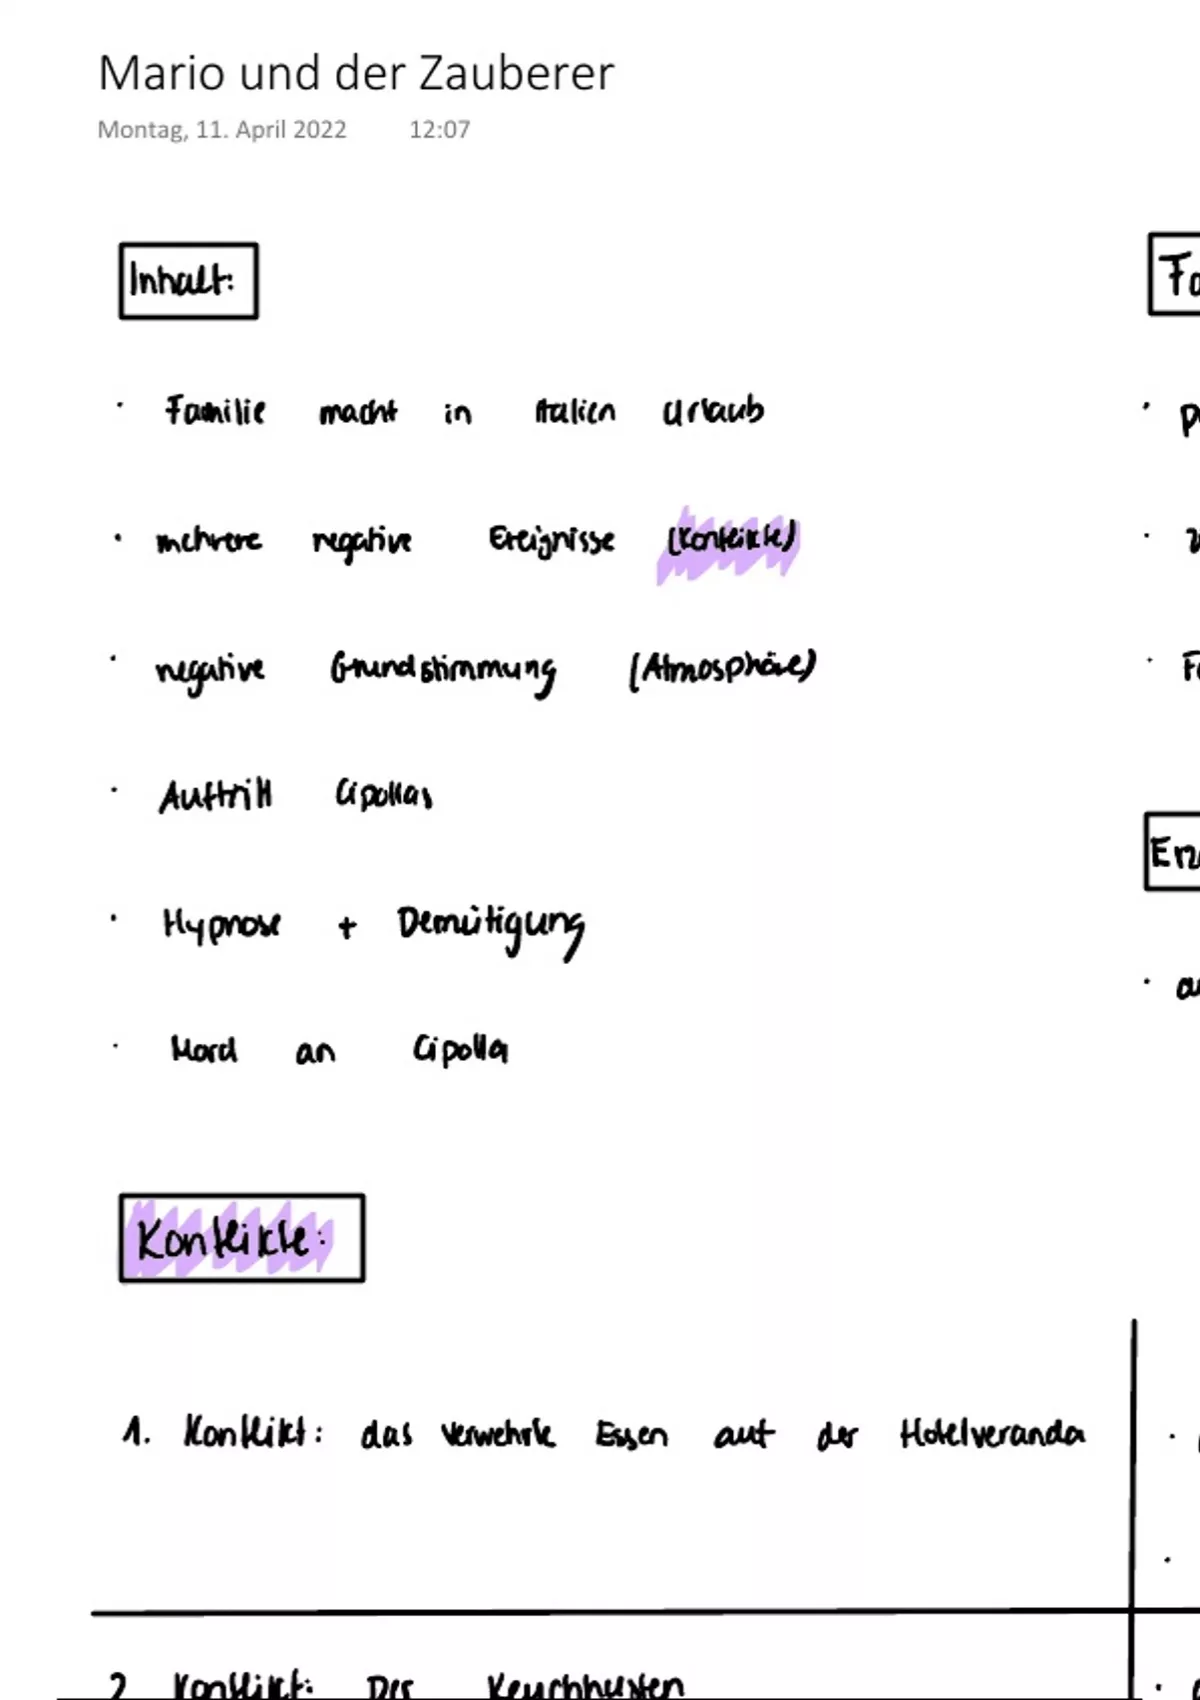 Mario und der Zauberer
Montag, 11. April 2022 12:07
Inhalt:
· Familie macht in Italien Urlaub
· mehrere negative Ereignisse (Konflikte)
· negative Grundstimmung (Atmosphäre)
· Auftritt Cipollas
· Hypnose + Demütigung
· Mord an Cipolla
Konflikte:
1. Konflikt: das verwehrte Essen auf der Hotelveranda
2 Konflikt: Der Keuchhusten